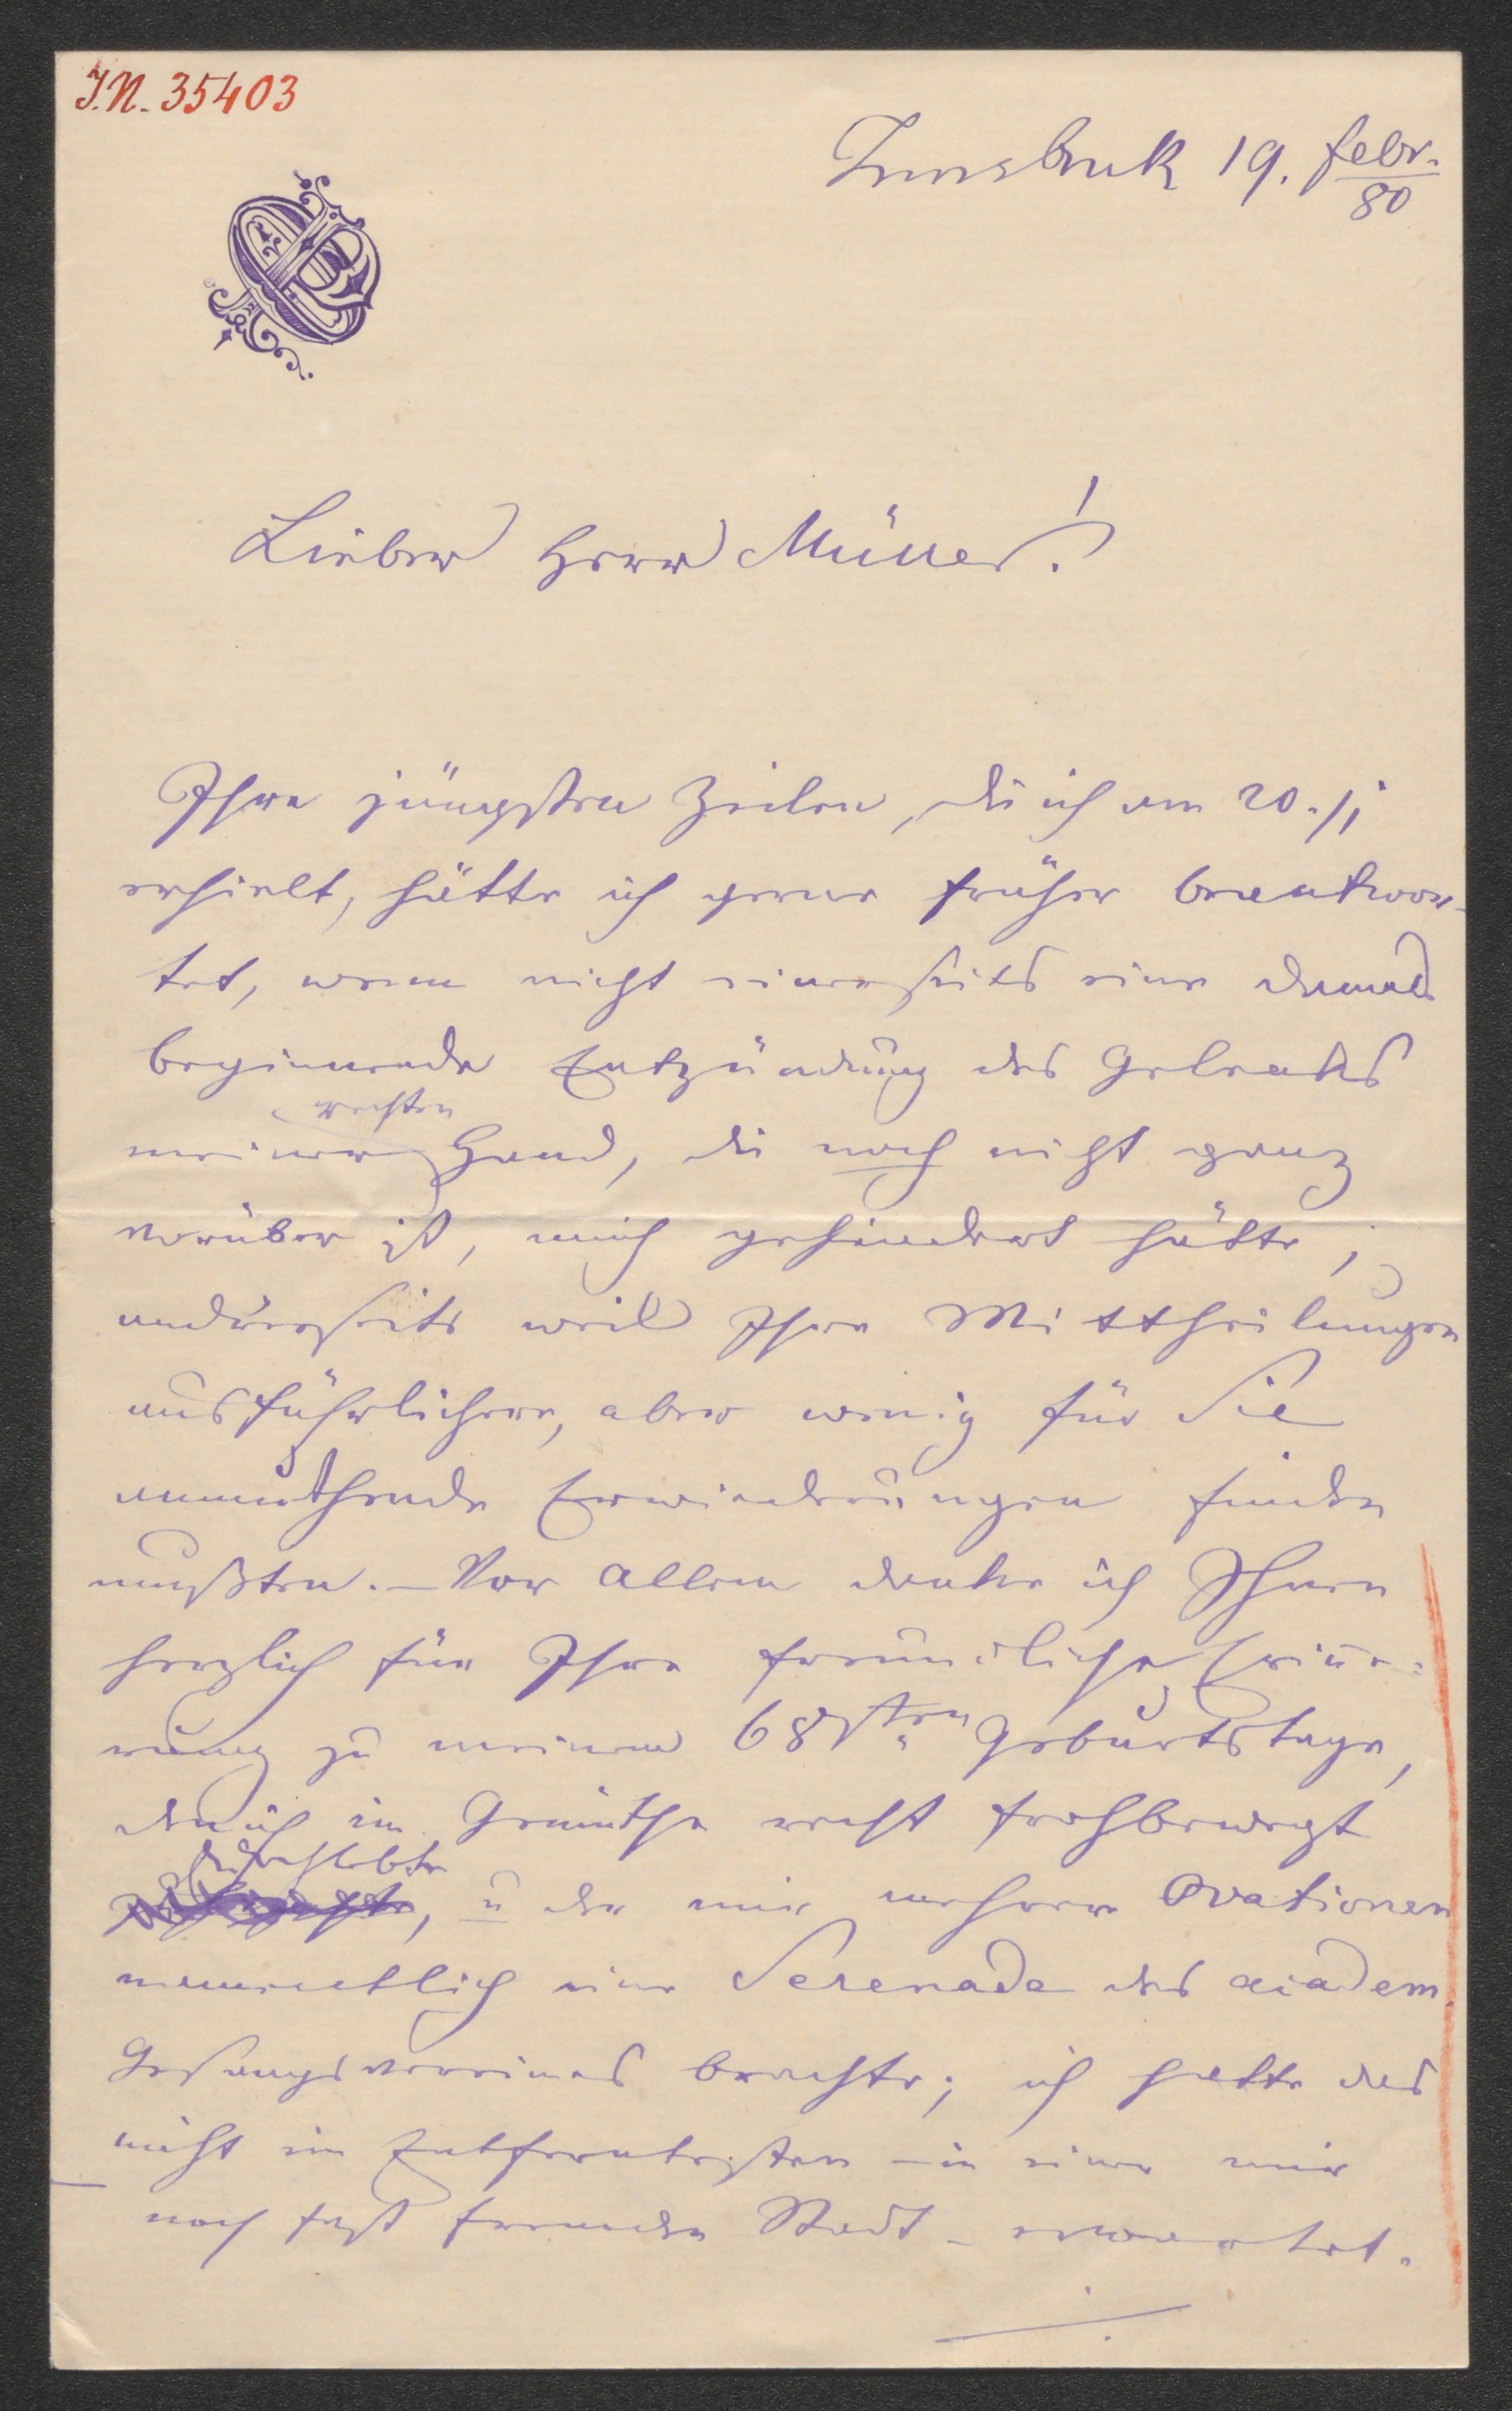 J.N. 35403
Innsbruk 19. Febr.
80
Lieber Herr Müller!
Ihre jüngsten Zeilen, die ich am 20./1
erhielt, hätte ich gerne früher beantwor-
tet, wenn nicht einerseits eine damals
beginnende Entzündung des Gelenks
rechten
meiner Hand, die noch nicht ganz
vorüber ist, mich gehindert hätte,
anderseits weil Ihre Mittheilungen
ausführlichere, aber wenig für Sie
anmuthende Erwiederungen finden
mußten. – Vor allem danke ich Ihnen
herzlich für Ihre freundliche Erinne-
rung zu meinem 68sten Geburtstage,
den ich im Gemüthe recht frohbewegt
durchlebte
, u der mir mehrere Ovationen
namentlich eine Serenade des academ.
Gesangsvereines brachte; ich hatte das
nicht im Entferntesten – in einer mir
noch fast fremden Stadt – erwartet.